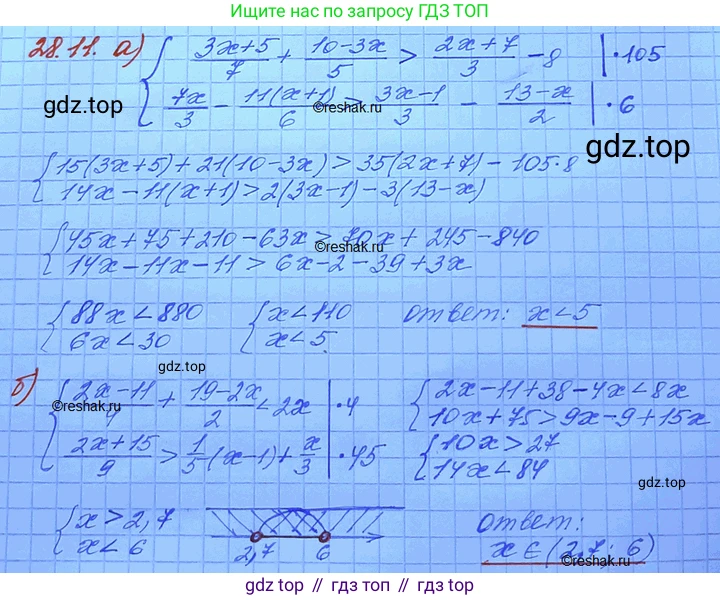 Ищите нас по запросу ГДЗ ТОП
28.11. а) { (3x+5)/7 + (10-3x)/5 > (2x+7)/3 - 8 | ·105
7x/3 - 11(x+1)/6 > (3x-1)/3 - (13-x)/2 | ·6
gdz.top
©reshak.ru
gdz.top
{ 15(3x+5)+21(10-3x)>35(2x+7)-105·8
14x-11(x+1)>2(3x-1)-3(13-x)
{ 45x+75+210-63x>70x+245-840
14x-11x-11>6x-2-39+3x
©reshak.ru
{ 88x<880 { x<110 ответ: x<5
6x<30 x<5.
gdz.top
б) { (2x-11)/4 + (19-2x)/2 < 2x | ·4 { 2x-11+38-4x<8x
(2x+15)/9 > 1/5(x-1)+x/3 | ·45 10x+75>9x-9+15x
©reshak.ru
{ 10x>27
14x<84
gdz.top
{ x>2,7 ответ:
x<6 2,7 6 x∈(2,7; 6)
gdz.top
©reshak.ru
gdz.top // гдз.топ // gdz.top